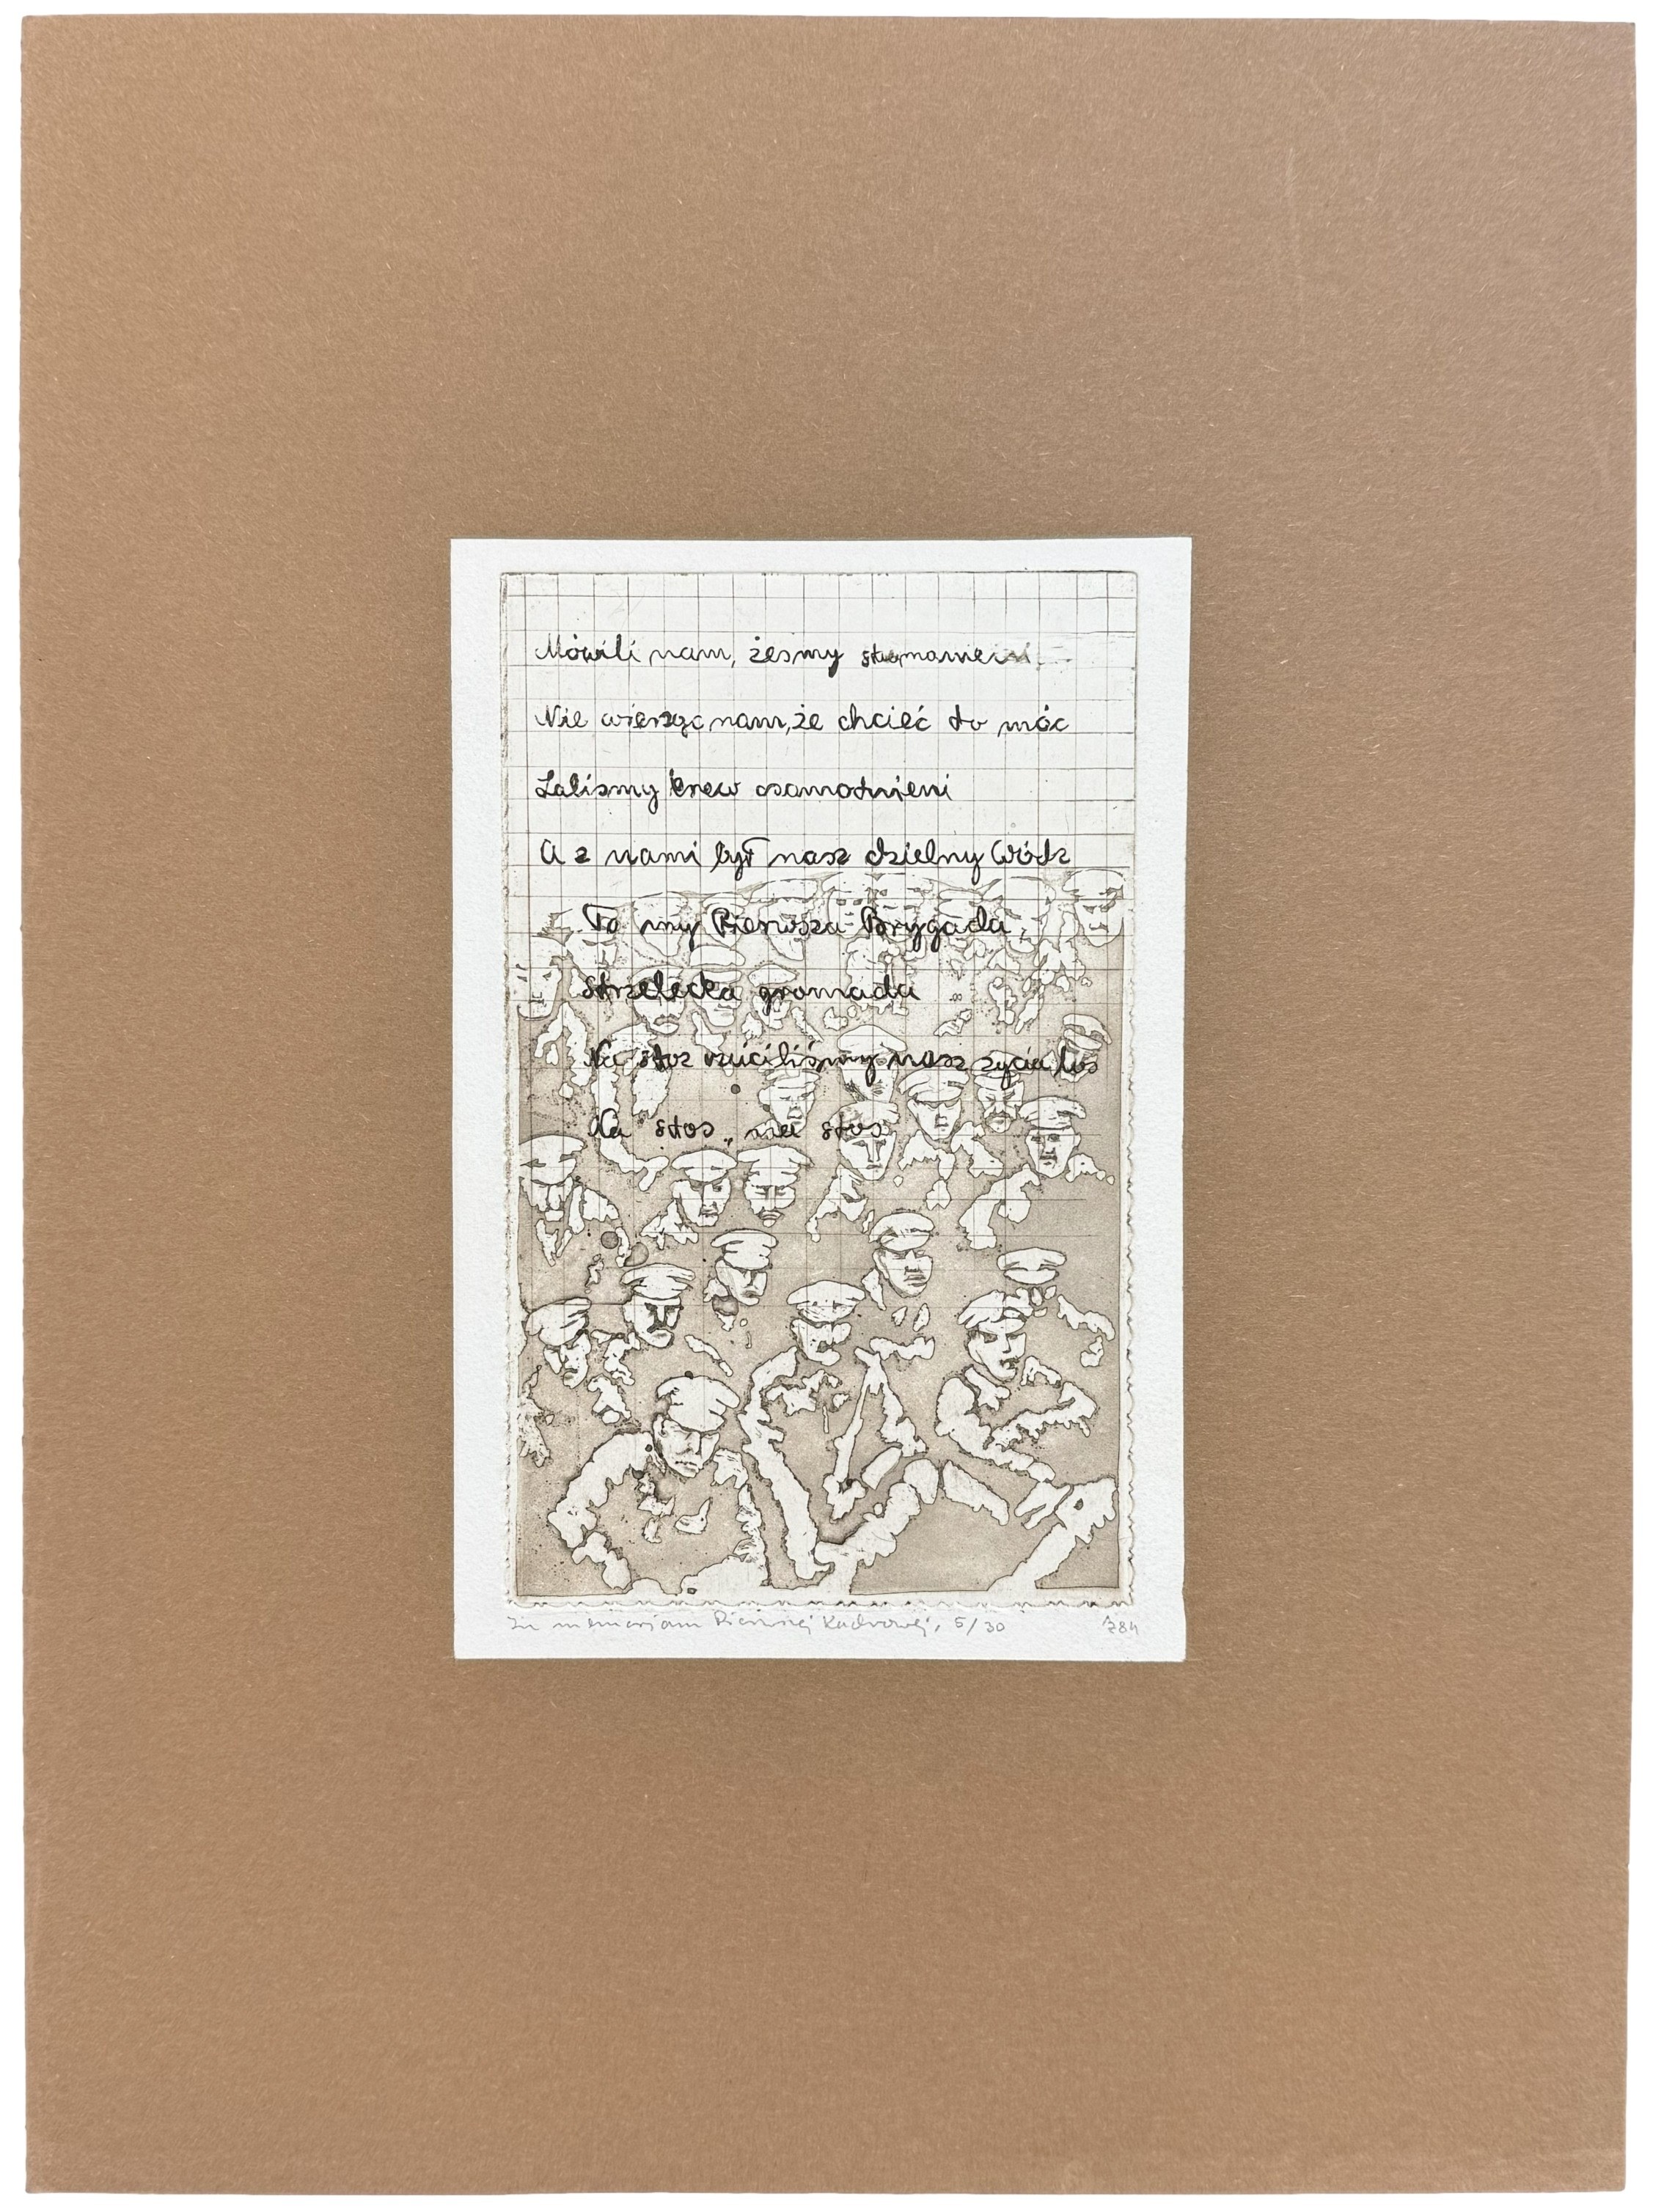 Mówili nam, żesmy stumanieni
Nie wierząc nam, że chcieć to móc
Laliśmy krew osamotnieni
A z nami był nasz dzielny Wódz
To my Pierwsza Brygada,
Strzelecka gromada
Na stos rzuciliśmy nasz życia los
Na stos, na stos
In memoriam Pierwszej Kadrowej, 5/30